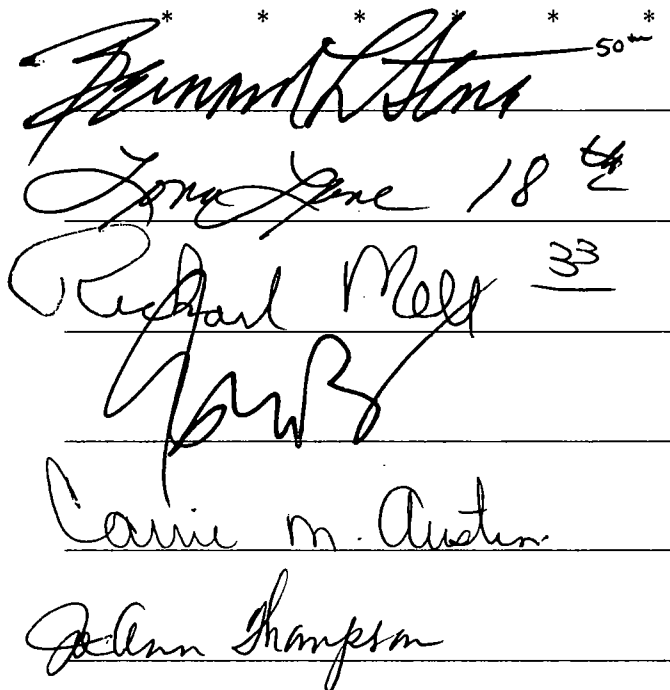 * * * * * *
Bernard L Stone 50th
Lona Lane 18th
Richard Mell 33
Carrie M. Austin
JoAnn Thompson